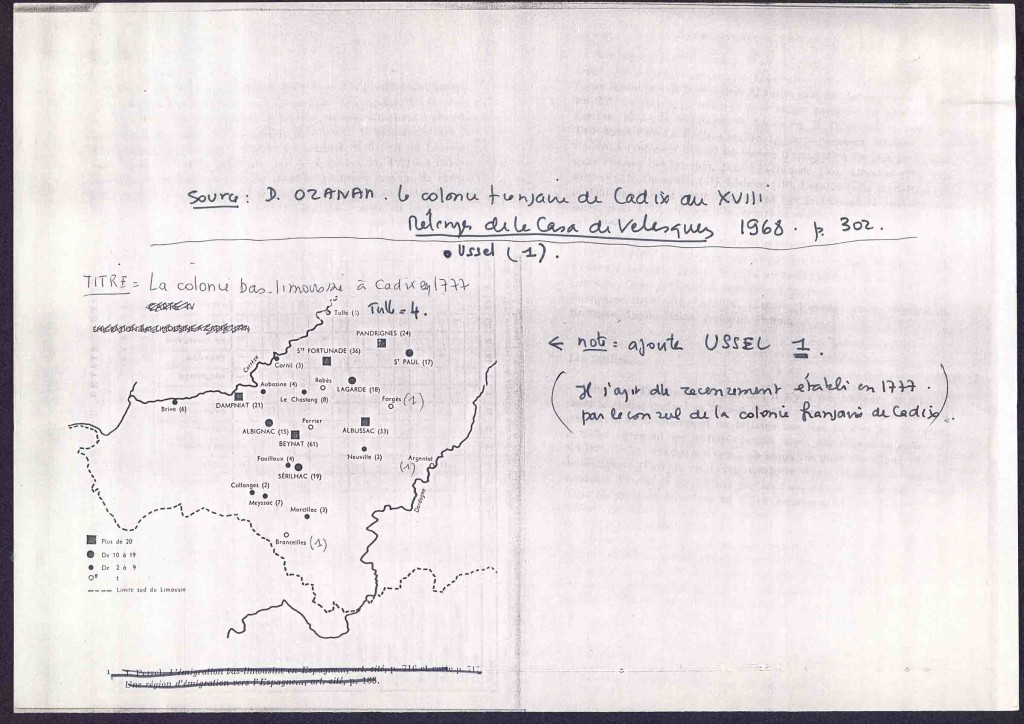 Source: D. OZANAM. la colonie française de Cadix au XVIII
Mélanges de la Casa de Velasquez 1968. p. 302.
Ussel (1).
TITRE = La colonie bas-limousine à Cadix en 1777
CARTE IV
Tulle Tulle = 4.
PANDRIGNES (24)
← note: ajoute USSEL 1.
Ste FORTUNADE (36)
St PAUL (17)
Corrèze
Cornil (3)
Aubazine (4)
Rabès
LAGARDE (18)
Il s'agit du recensement établi en 1777.
DAMPNIAT (21)
Le Chastang (8)
Forgès (1)
par le consul de la colonie française de Cadix.
Brive (6)
ALBIGNAC (15)
Perrier
ALBUSSAC (33)
BEYNAT (61)
Fouilloux (4)
Neuville (2)
Argentat
(1)
SÉRILHAC (19)
Collonges (2)
Dordogne
Meyssac (7)
Marcillac (3)
Branceilles (1)
Plus de 20
De 10 à 19
De 2 à 9
1
Limite sud du Limousin
1. L'émigration bas-limousine en Espagne, art. cité, p. 716 et carte p. 717
Une région d'émigration vers l'Espagne, art. cité, p. 188.